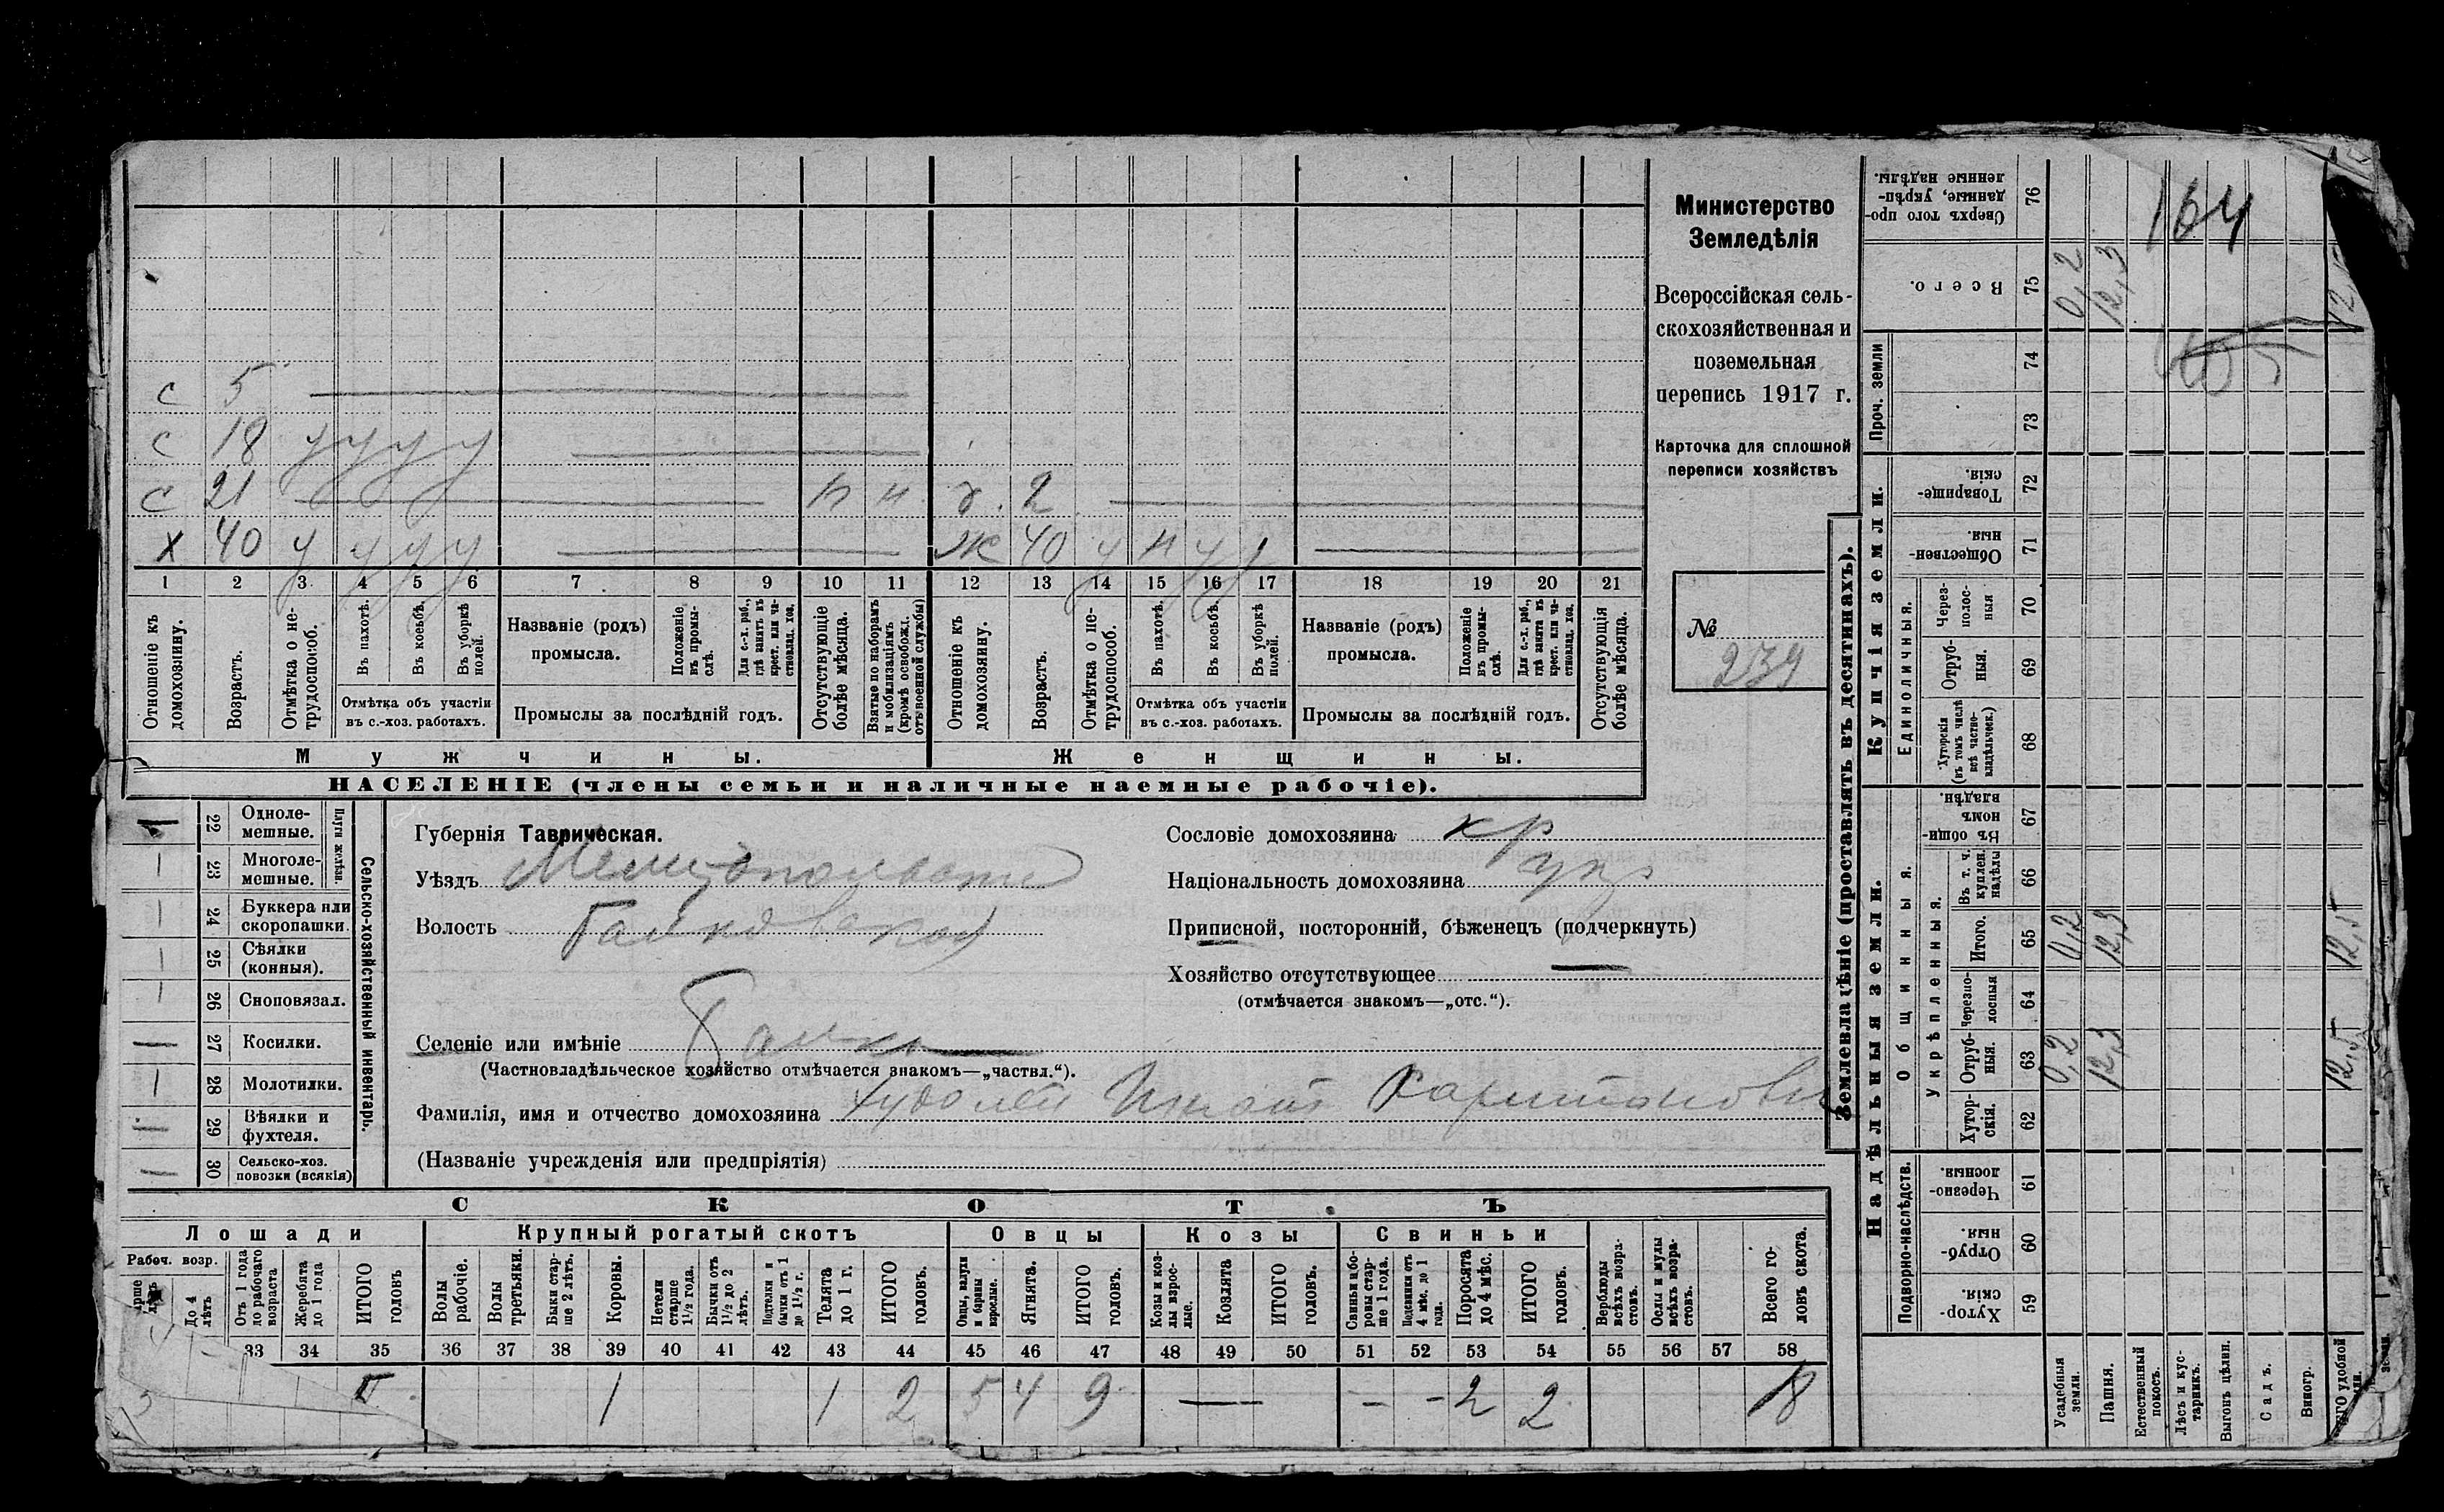 Министерство
Земледѣлія
Всероссійская сель-
скохозяйственная и
поземельная
перепись 1917 г.
Карточка для сплошной
переписи хозяйствъ
№
239
164
с 5
с 18 у у у у
с 21 н н 2
х 40 у у у у ж 40 у н у у
1 2 3 4 5 6 7 8 9 10 11 12 13 14 15 16 17 18 19 20 21
Отношеніе къ домохозяину.
Возрастъ.
Отмѣтка о не-трудоспособ.
Въ пахотѣ.
Въ косьбѣ.
Въ уборкѣ полей.
Отмѣтка объ участіи
въ с.-хоз. работахъ.
Названіе (родъ)
промысла.
Положеніе въ промы-слѣ.
Для с.-х. раб., гдѣ занятъ въ крест. или ча-стновлад. хоз.
Промыслы за послѣдній годъ.
Отсутствующіе болѣе мѣсяца.
Взятые по наборамъ и мобилизаціямъ (кромѣ освобожд. отъ военной службы)
Отношеніе къ домохозяину.
Возрастъ.
Отмѣтка о не-трудоспособ.
Въ пахотѣ.
Въ косьбѣ.
Въ уборкѣ полей.
Отмѣтка объ участіи
въ с.-хоз. работахъ.
Названіе (родъ)
промысла.
Положеніе въ промы-слѣ.
Для с.-х. раб., гдѣ занята въ крест. или ча-стновлад. хоз.
Промыслы за послѣдній годъ.
Отсутствующія болѣе мѣсяца.
Мужчины.
Женщины.
НАСЕЛЕНІЕ (члены семьи и наличные наемные рабочіе).
22 Одноле-мешные.
23 Многоле-мешные.
Плуги желѣзн.
24 Буккера или скоропашки.
25 Сѣялки (конныя).
26 Сноповязал.
27 Косилки.
28 Молотилки.
29 Вѣялки и фухтеля.
30 Сельско-хоз. повозки (всякія)
Сельско-хозяйственный инвентарь.
Губернія Таврическая.
Уѣздъ Мелитопольскій
Волость
Селеніе или имѣніе
(Частновладѣльческое хозяйство отмѣчается знакомъ—„частвл.“).
Фамилія, имя и отчество домохозяина Худолей Игнат Харитонови
(Названіе учрежденія или предпріятія)
Сословіе домохозяина кр
Національность домохозяина
Приписной, посторонній, бѣженецъ (подчеркнуть)
Хозяйство отсутствующее —
(отмѣчается знакомъ—„отс.“).
СКОТЪ
Лошади
Крупный рогатый скотъ
Овцы
Козы
Свиньи
Рабоч. возр.
До 4 лѣтъ
Отъ 1 года до рабочаго возраста
Жеребята до 1 года
ИТОГО головъ
Волы рабочіе.
Волы третьяки.
Быки стар-ше 2 лѣтъ.
Коровы.
Нетели старше 1½ года.
Бычки отъ 1½ до 2 лѣтъ.
Подтелки и бычки отъ 1 до 1½ г.
Телята до 1 г.
ИТОГО головъ.
Овцы, валухи и бараны взрослые.
Ягнята.
ИТОГО головъ.
Козы и коз-лы взрос-лые.
Козлята
ИТОГО головъ.
Свиньи и бо-ровы стар-ше 1 года.
Подсвинки отъ 4 мѣс. до 1 года.
Поросята до 4 мѣс.
ИТОГО головъ.
Верблюды всѣхъ возра-стовъ.
Ослы и мулы всѣхъ возра-стовъ.
Всего го-ловъ скота.
33 34 35 36 37 38 39 40 41 42 43 44 45 46 47 48 49 50 51 52 53 54 55 56 57 58
1 1 2 5 4 9 — — — 2 2 18
Землевладѣніе (проставлять въ десятинахъ).
Надѣльныя земли.
Купчія земли.
Проч. земли
Сверхъ того про-данные, укрѣп-ленные надѣлы. 76
Всего. 75 0,2 12,3
74
73
Товарище-скія. 72
Обществен-ныя. 71
Единоличныя.
Через-полос-ныя 70
Отруб-ныя. 69
Хуторскія (въ томъ числѣ всѣ частно-владѣльческ.) 68
Общинныя.
Въ общи-номъ владѣн. 67
Укрѣпленныя.
Въ т. ч. куплен. надѣлы 66
Итого. 65 0,2 12,3 12,5
Черезпо-лосныя 64
Отруб-ныя. 63 0,2 12,3 12,5
Хутор-скія. 62
Подворно-наслѣдств.
Черезпо-лосныя. 61
Отруб-ныя. 60
Хутор-скія. 59
Усадебныя земли.
Пашня.
Естественный покосъ.
Лѣсъ и кус-тарникъ.
Выгонъ цѣлин.
Садъ.
Виногр.
удобной